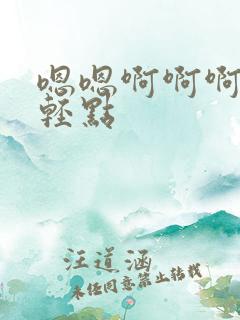 嗯嗯啊啊啊
輕點
汪道涵
未经同意禁止转载